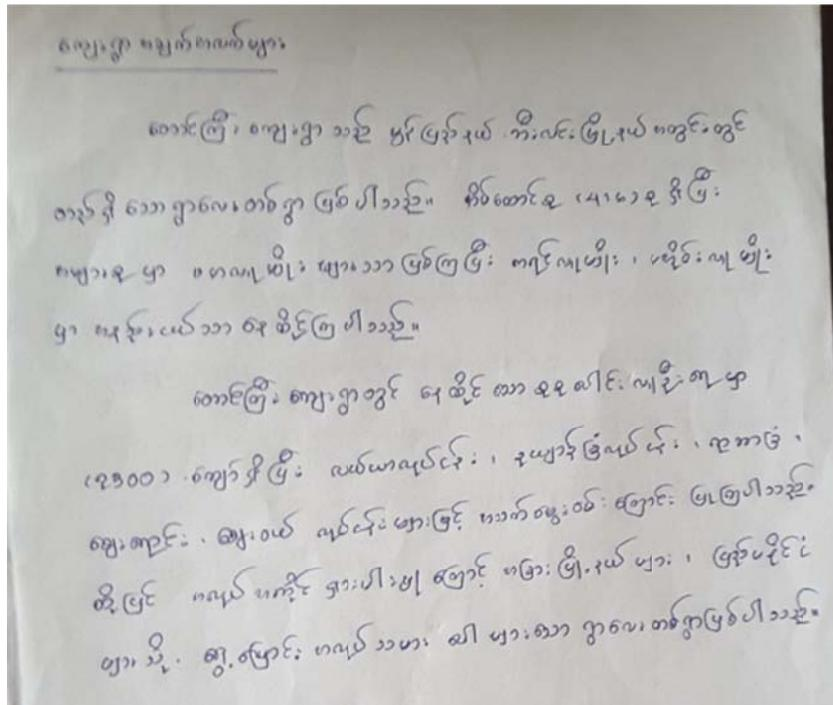 ကျေးရွာ အချက်အလက်များ
တောင်ကြီး ကျေးရွာ သည် မွန်ပြည်နယ် ဘီးလင်းမြို့နယ် အတွင်းတွင်
တည်ရှိ သော ရွာလေး တစ်ရွာ ဖြစ်ပါသည်။ အိမ်ထောင်စု (၄၊၀) စု ရှိပြီး
အများစု မှာ ဗမာလူမျိုး များသာ ဖြစ်ကြပြီး ကရင်လူမျိုး ၊ ပအိုဝ်းလူမျိုး
မှာ အနည်းငယ်သာ နေထိုင်ကြပါသည်။
တောင်ကြီး ကျေးရွာတွင် နေထိုင် သော စုစုပေါင်း လူဦးရေ မှာ
(၁၅၀၀) ကျော်ရှိပြီး လယ်ယာလုပ်ငန်း ၊ ဥယျာဉ်ခြံလုပ်ငန်း ၊ ရာဘာခြံ ၊
ဈေးရောင်း ၊ ဈေးဝယ် လုပ်ငန်းများဖြင့် အသက်မွေးဝမ်း ကြောင်း ပြုကြပါသည်။
ထို့ပြင် အလုပ်အကိုင် ရှားပါးမှု ကြောင့် အခြားမြို့နယ် များ ၊ ပြည်ပနိုင်ငံ
များ သို့ ရွှေ့ပြောင်း အလုပ်သမား ပေါများသော ရွာလေး တစ်ရွာဖြစ်ပါသည်။